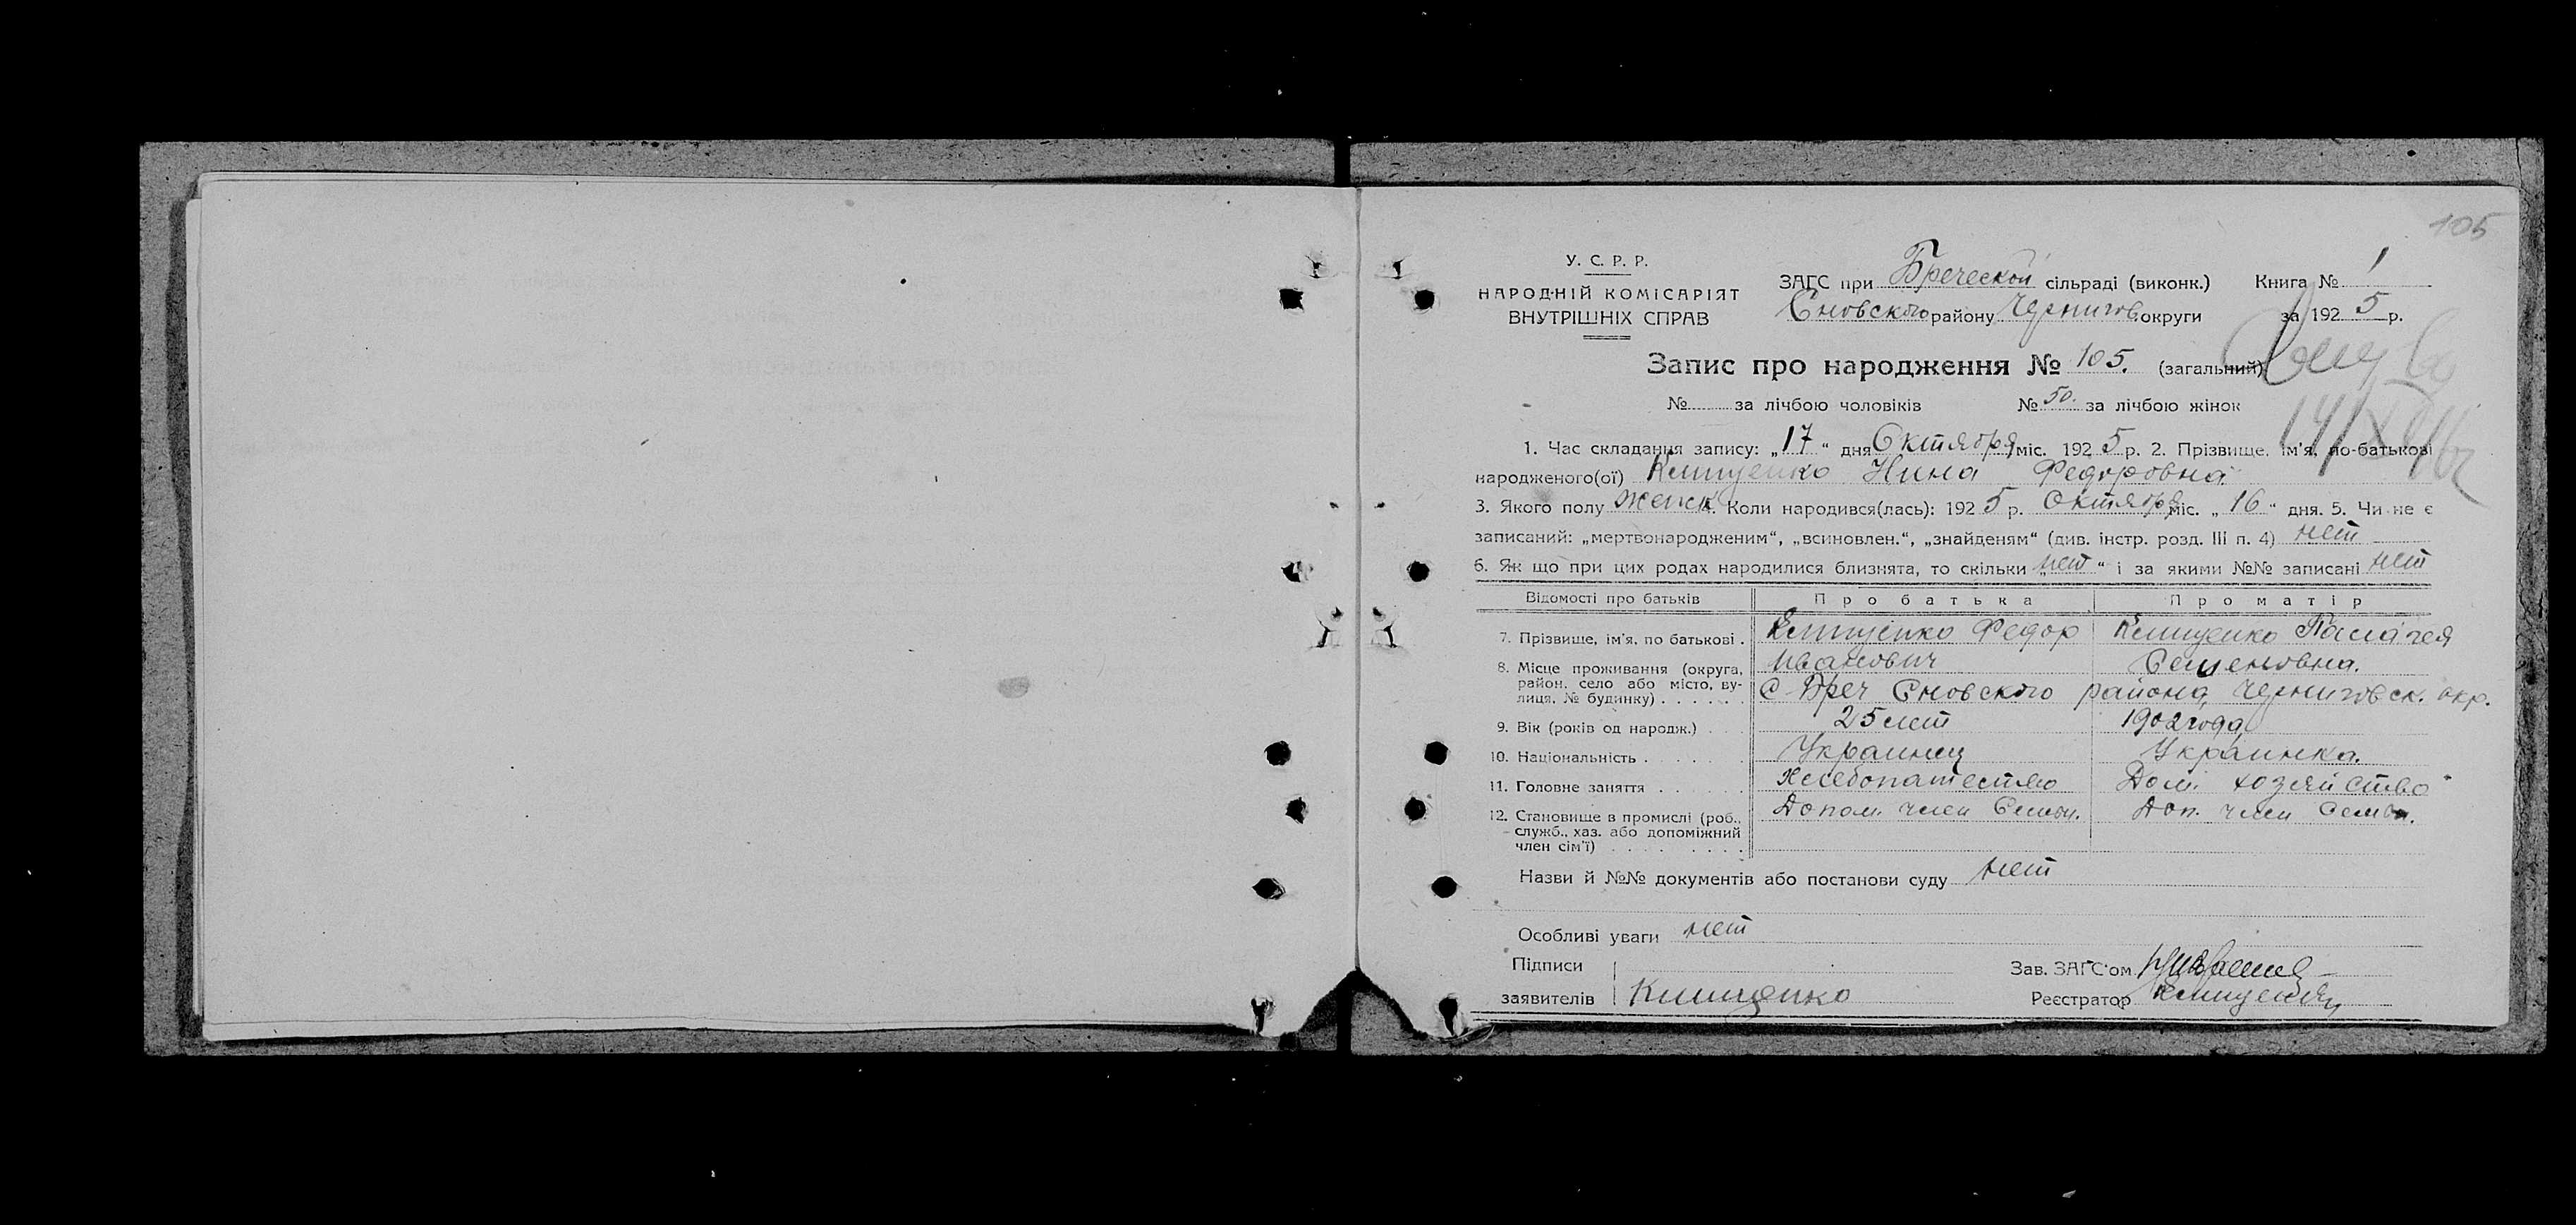 105
У. С. Р. Р.
НАРОДНІЙ КОМІСАРІЯТ
ВНУТРІШНІХ СПРАВ
ЗАГС при Бреческой сільраді (виконк.) Книга № 1
Сновского району Чернигов. округи за 1925 р.
Запис про народження № 105. (загальний)
№ за лічбою чоловіків № 50. за лічбою жінок
1. Час складання запису: „17“ дня Октября міс. 1925 р. 2. Прізвище, ім'я, по-батькові
народженого(ої) Клищенко Нина Федоровна
3. Якого полу женск. 4. Коли народився(лась): 1925 р. Октября міс. „16“ дня. 5. Чи не є
записаний: „мертвонародженим“, „всиновлен.“, „знайденям“ (див. інстр. розд. III п. 4) нет
6. Як що при цих родах народилися близнята, то скільки „нет“ і за якими №№ записані нет
Відомості про батьків Про батька Про матір
7. Прізвище, ім'я, по батькові . Клищенко Федор Иванович Клищенко Палагея Семеновна.
8. Місце проживання (округа, район, село або місто, вулиця, № будинку) . . . . . . С. Бреч Сновского района, Черниговск. окр.
9. Вік (років од народж.) . . . 25 лет 1902 года
10. Національність . . . . . . Украинец Украинка.
11. Головне заняття . . . . . . Хлебопашество Дом. хозяйство
12. Становище в промислі (роб., служб., хаз. або допоміжний член сім'ї) . . . . . . . . . Допом. член Семьи. Доп. член Семьи.
Назви й №№ документів або постанови суду нет
Особливі уваги нет
Підписи
заявителів Клищенко
Зав. ЗАГС'ом
Реєстратор Клищенко